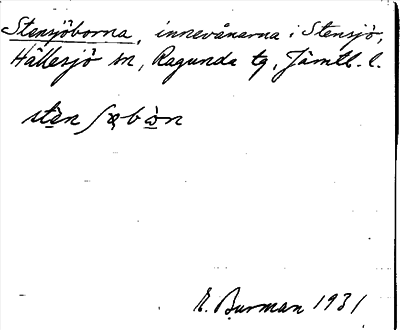 Stensjöborna, innevånarna i Stensjö,
Hällesjö sn, Ragunda tg, Jämtl. l.
stèn ʃǫbòn
E. Burman 1931